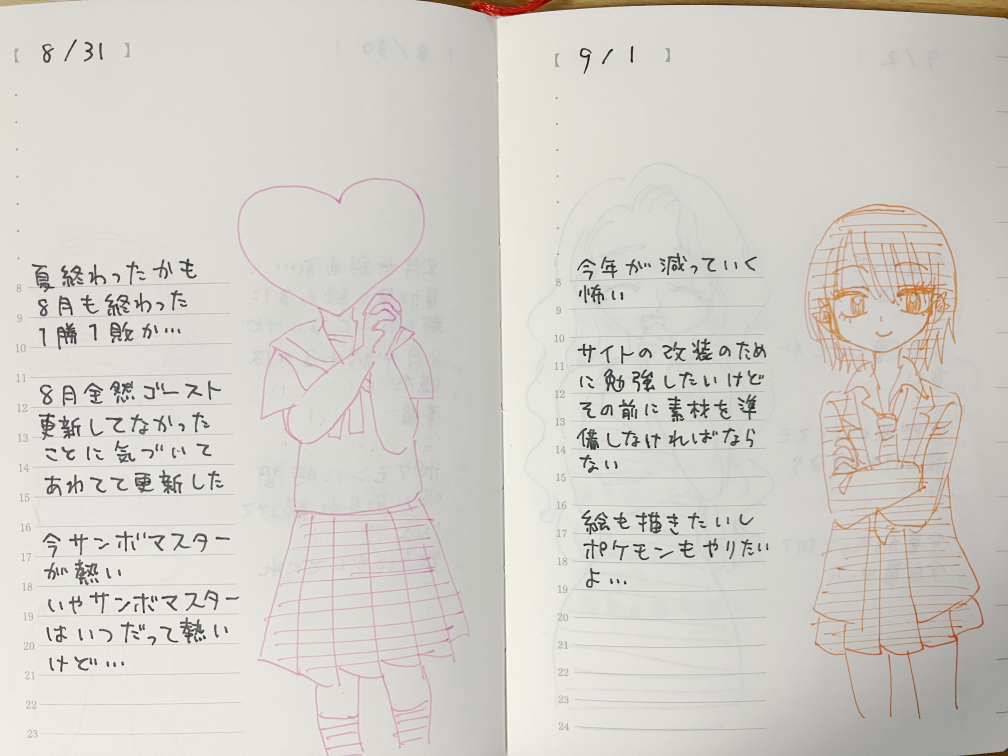 【 8/31 】
夏終わったかも
8月も終わった
1勝1敗か…
8月全然ゴースト
更新してなかった
ことに気づいて
あわてて更新した
今サンボマスター
が熱い
いやサンボマスター
はいつだって熱い
けど…
8
9
10
11
12
13
14
15
16
17
18
19
20
21
22
23
【 9/1 】
今年が減っていく
怖い
サイトの改装のため
に勉強したいけど
その前に素材を準
備しなければなら
ない
絵も描きたいし
ポケモンもやりたい
よ…
8
9
10
11
12
13
14
15
16
17
18
19
20
21
22
23
24